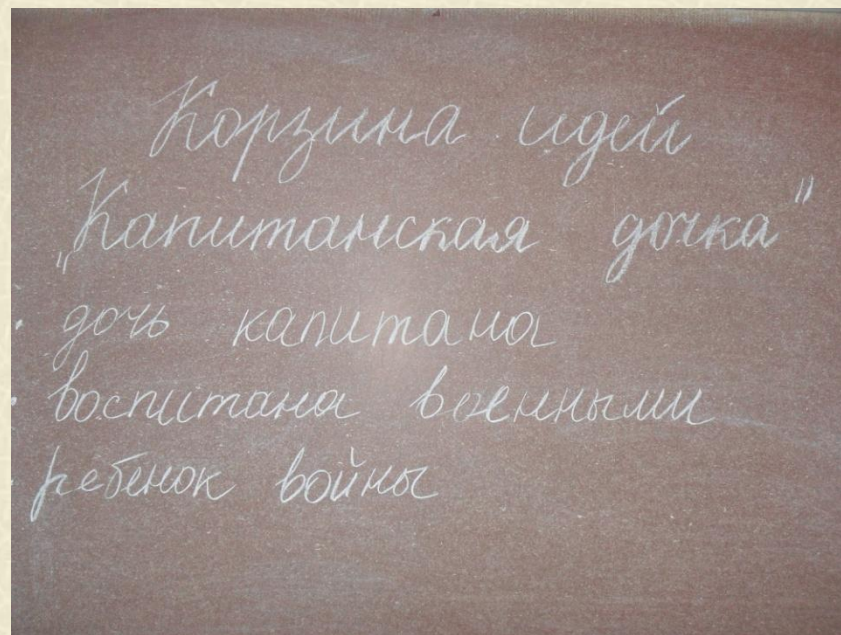 Корзина идей
„Капитанская дочка"
· дочь капитана
· воспитана военными
· ребенок войны